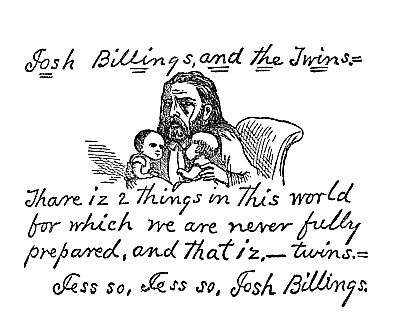 Josh Billings, and the Twins.=
Thare iz 2 things in this world
for which we are never fully
prepared, and that iz,— twins.=
Jess so, Jess so, Josh Billings.